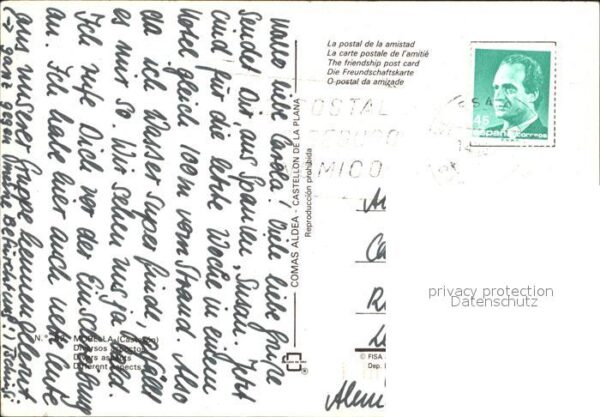 Hallo liebe Carola! Viele liebe Grüße
sendet Dir, aus Spanien, Susan. Jetzt
sind für die letzte Woche in einem
Hotel gleich 100m vom Strand. Also
da ich Wasser super finde gefällt
es mir so. Wir sehen uns ja bald.
Ich rufe Dich vor der Einschulung
an. Ich habe hier auch nette Leute
aus unserer Gruppe kennengelernt
(→ ganz gegen meine Befürchtung!)
La postal de la amistad
La carte postale de l'amitié
The friendship post card
Die Freundschaftskarte
O postal da amizade
45
España correos
OSTAL
MICO
COMAS ALDEA - CASTELLON DE LA PLANA
Reproducción prohibida
N.°
MORELLA (Castellón)
Diversos aspectos
Divers aspects
Different aspects
© FISA
Dep.
privacy protection
Datenschutz